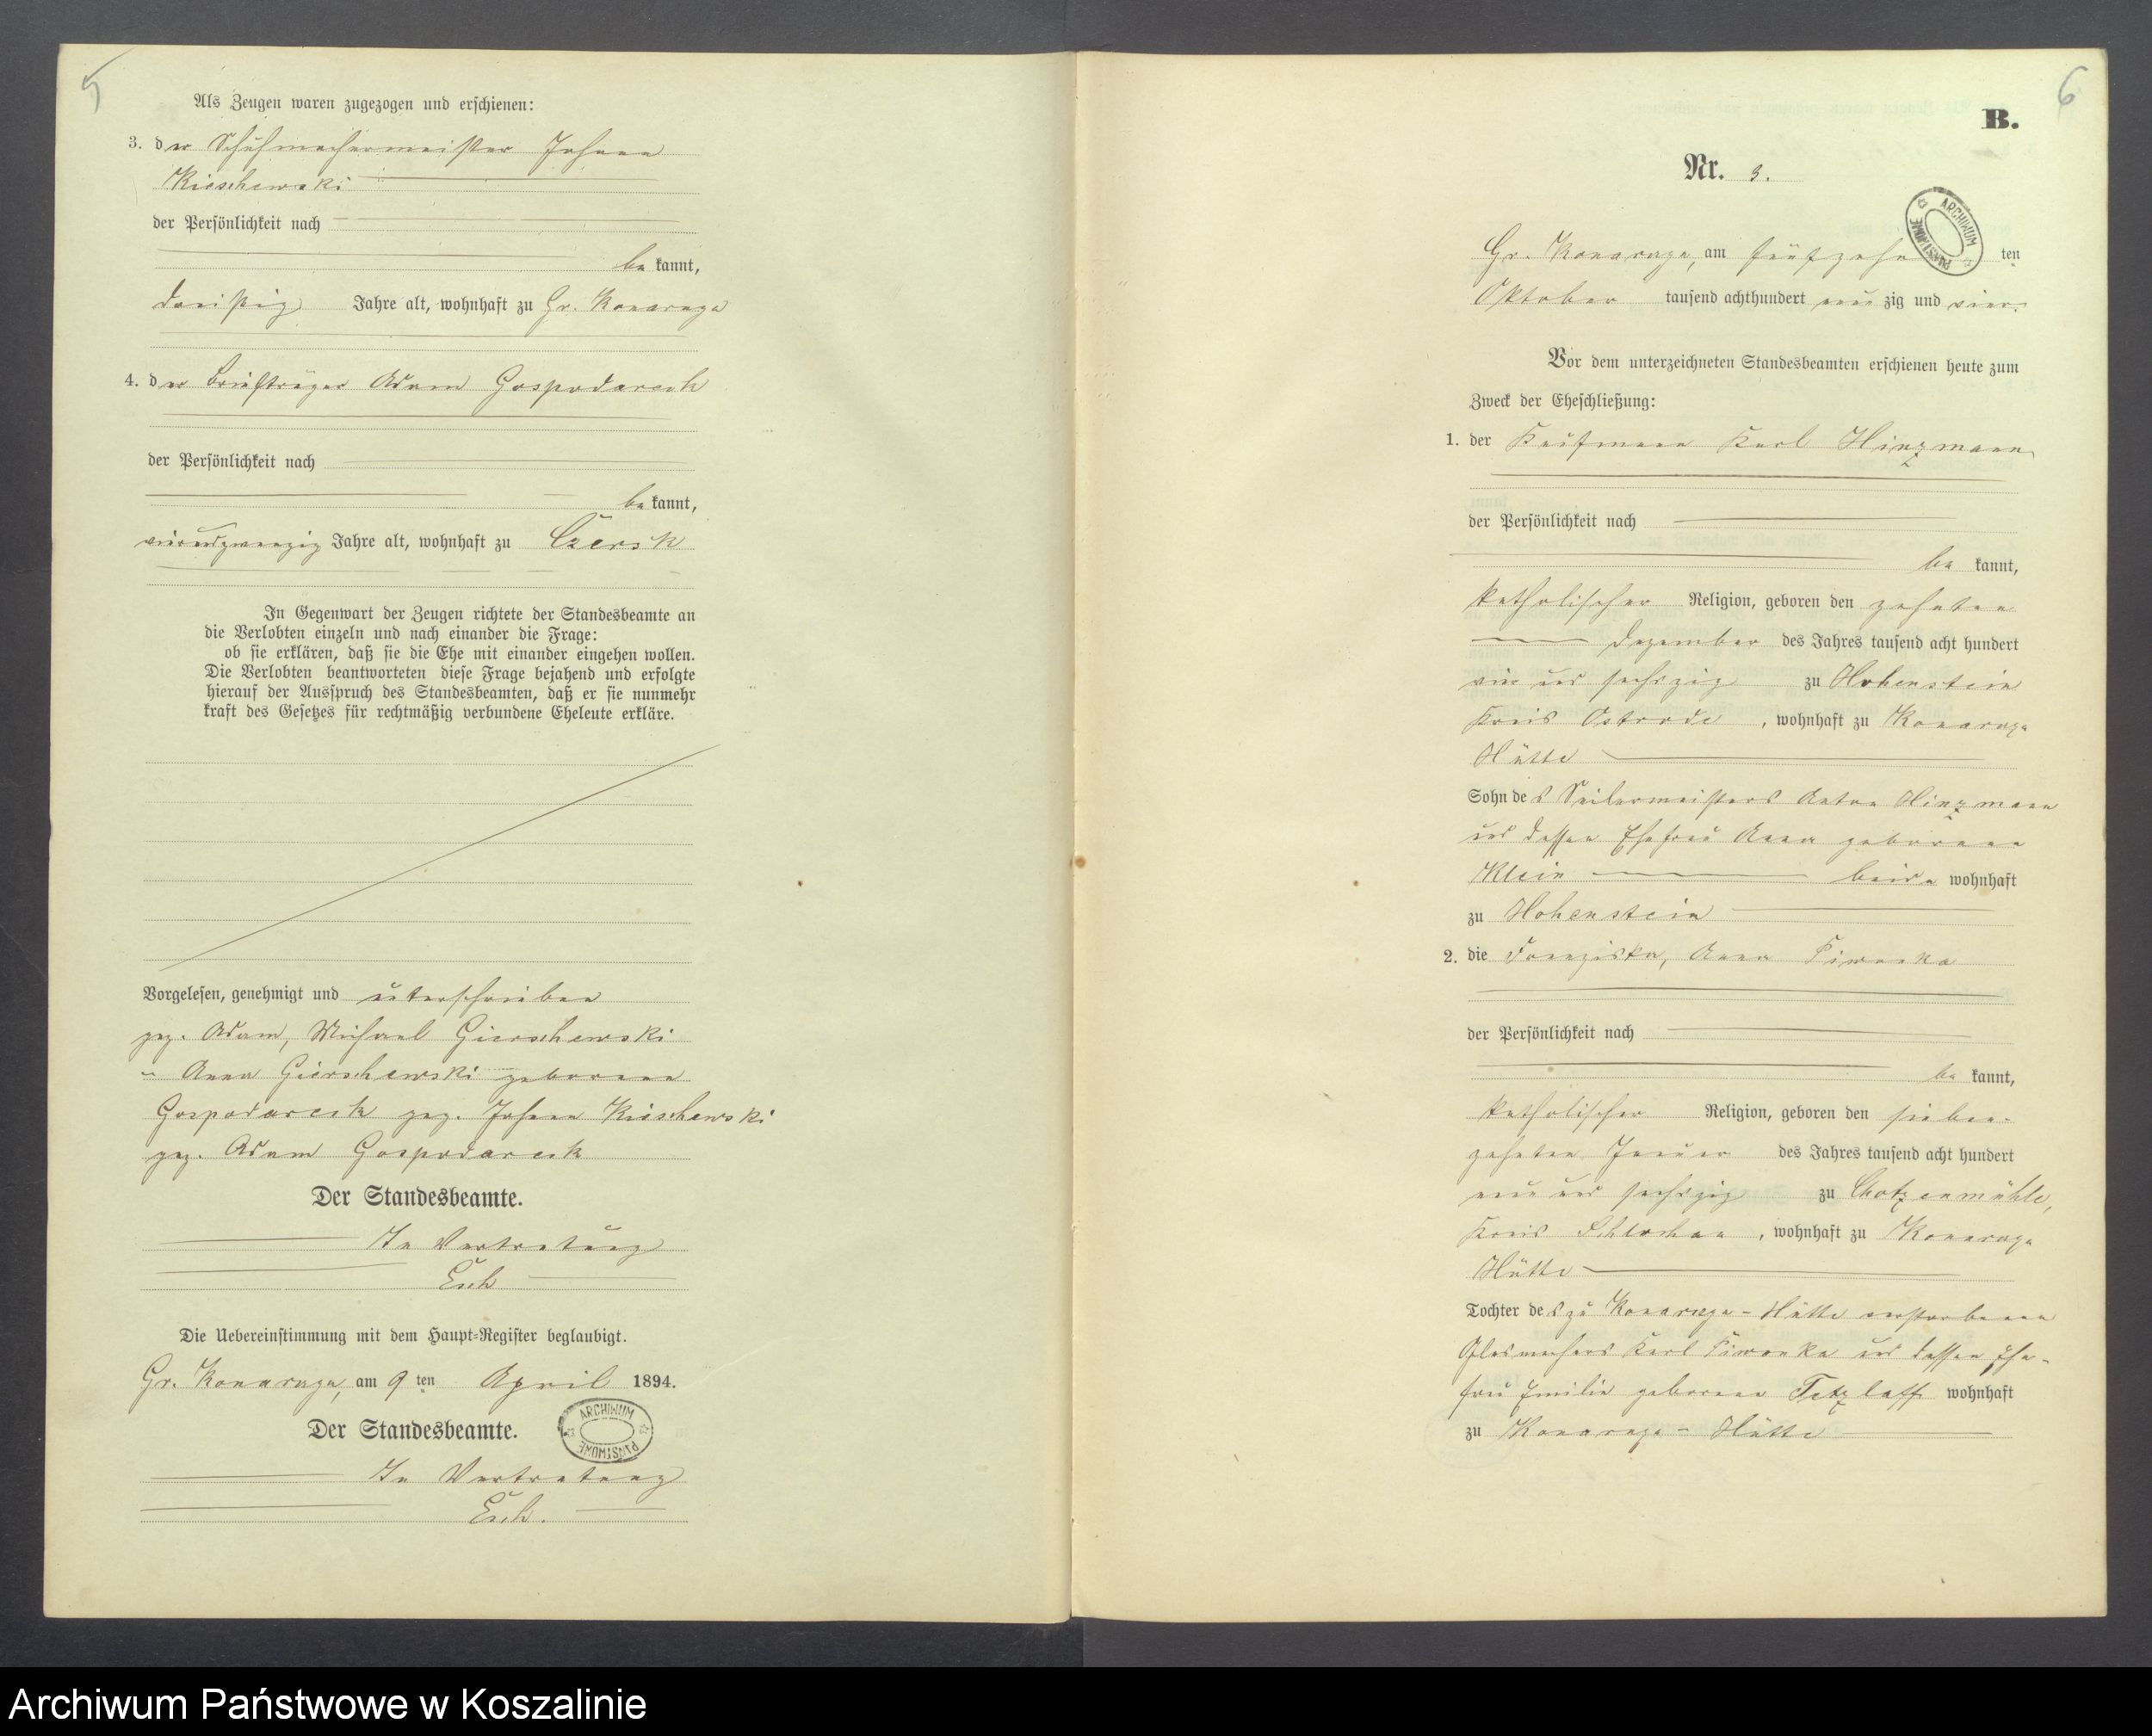 5
Als Zeugen waren zugezogen und erschienen:
3. der Schuhmachermeister Johann
Kieschewski
der Persönlichkeit nach
be kannt,
dreißig Jahre alt, wohnhaft zu Gr. Konarzyn
4. der Briefträger Adam Gospodarek
der Persönlichkeit nach
be kannt,
vierundzwanzig Jahre alt, wohnhaft zu Czersk
In Gegenwart der Zeugen richtete der Standesbeamte an
die Verlobten einzeln und nach einander die Frage:
ob sie erklären, daß sie die Ehe mit einander eingehen wollen.
Die Verlobten beantworteten diese Frage bejahend und erfolgte
hierauf der Ausspruch des Standesbeamten, daß er sie nunmehr
kraft des Gesetzes für rechtmäßig verbundene Eheleute erkläre.
Vorgelesen, genehmigt und unterschrieben
gez. Adam, Michael Gierschewski
" Anna Gierschewski geborene
Gospodarek gez. Johann Kieschewski
gez. Adam Gospodarek
Der Standesbeamte.
In Vertretung
Esch
Die Uebereinstimmung mit dem Haupt-Register beglaubigt.
Gr. Konarzyn, am 9 ten April 1894.
Der Standesbeamte.
ARCHIWUM PAŃSTWOWE
In Vertretung
Esch.
6
B.
Nr. 3.
ARCHIWUM PAŃSTWOWE
Gr. Konarzyn, am fünfzehn ten
Oktober tausend achthundert neun zig und vier.
Vor dem unterzeichneten Standesbeamten erschienen heute zum
Zweck der Eheschließung:
1. der Kaufmann Karl Hinzmann
der Persönlichkeit nach
be kannt,
katholischer Religion, geboren den zehnten
Dezember des Jahres tausend acht hundert
ein und sechszig zu Hohenstein
Kreis Osterode, wohnhaft zu Konarzyn
Hütte
Sohn des Seilermeisters Anton Hinzmann
und dessen Ehefrau Anna geborenen
Klein beide wohnhaft
zu Hohenstein
2. die Franziska, Anna Piwonka
der Persönlichkeit nach
be kannt,
katholischer Religion, geboren den sieben-
zehnten Januar des Jahres tausend acht hundert
neun und sechszig zu Chotzenmühle,
Kreis Schlochau, wohnhaft zu Konarzyn
Hütte
Tochter des zu Konarzyn-Hütte verstorbenen
Glasmachers Karl Piwonka und dessen Ehe-
frau Emilie geborenen Tetzlaff wohnhaft
zu Konarzyn-Hütte
Archiwum Państwowe w Koszalinie